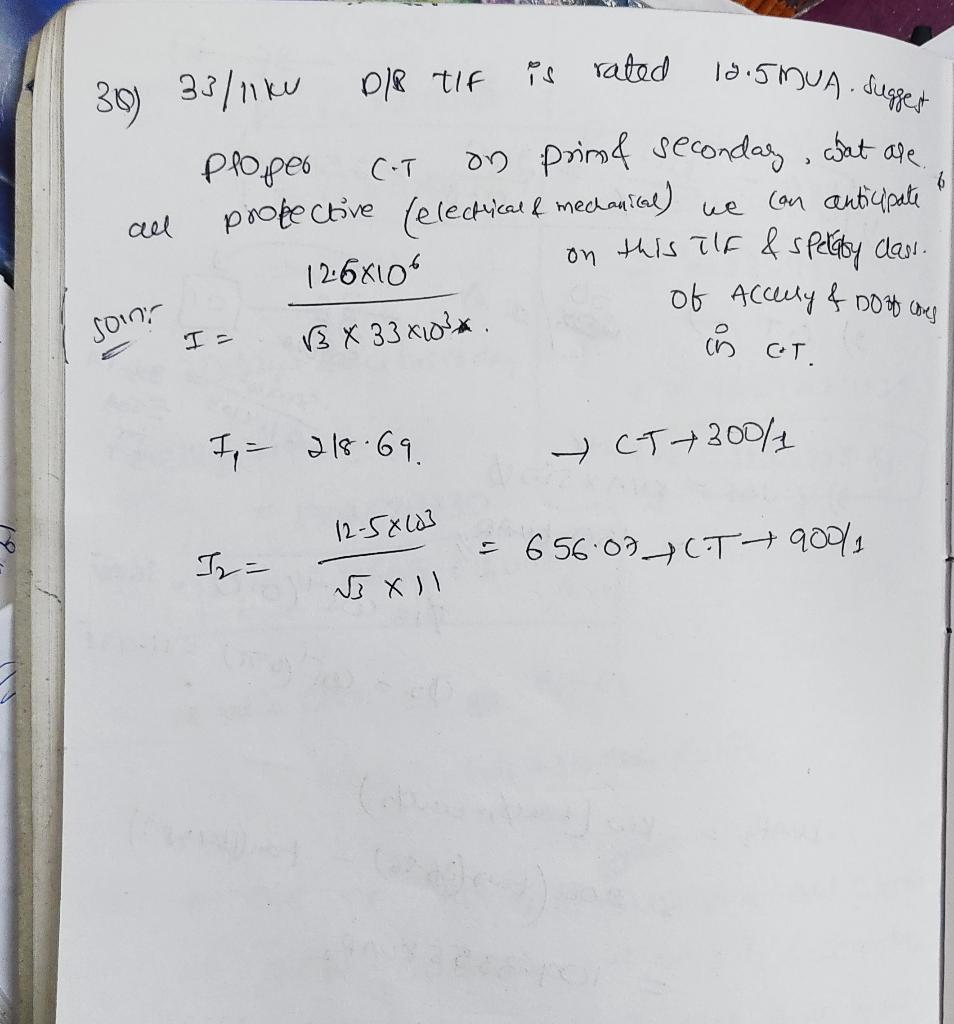 30) 33/11kv D/8 T/F is rated 12.5MVA. Suggest
Proper C.T on prim & secondary, what are
all protective (electrical & mechanical) we can anticipate
on this T/F & specify class.
of Accury & no of cores
in C.T.
Soln:-
I = 12.5x10⁶ / √3 x 33x10³
I₁ = 218.69. → CT → 300/1
I₂ = 12.5x10³ / √3 x 11 = 656.07 → C.T → 900/1